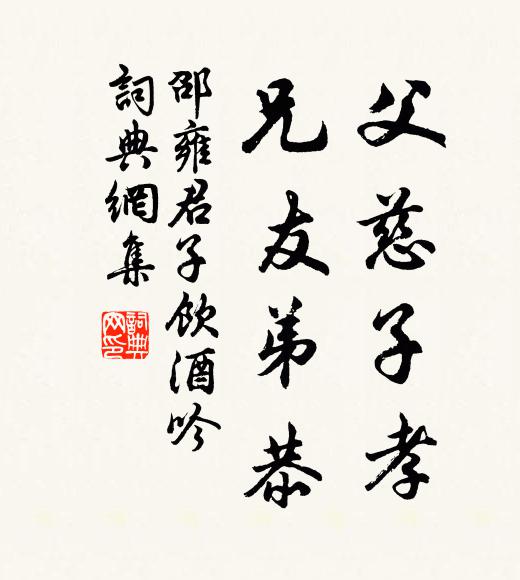 父慈子孝
兄友弟恭
邵雍君子飲酒吟
詞典網集
詞典
网印